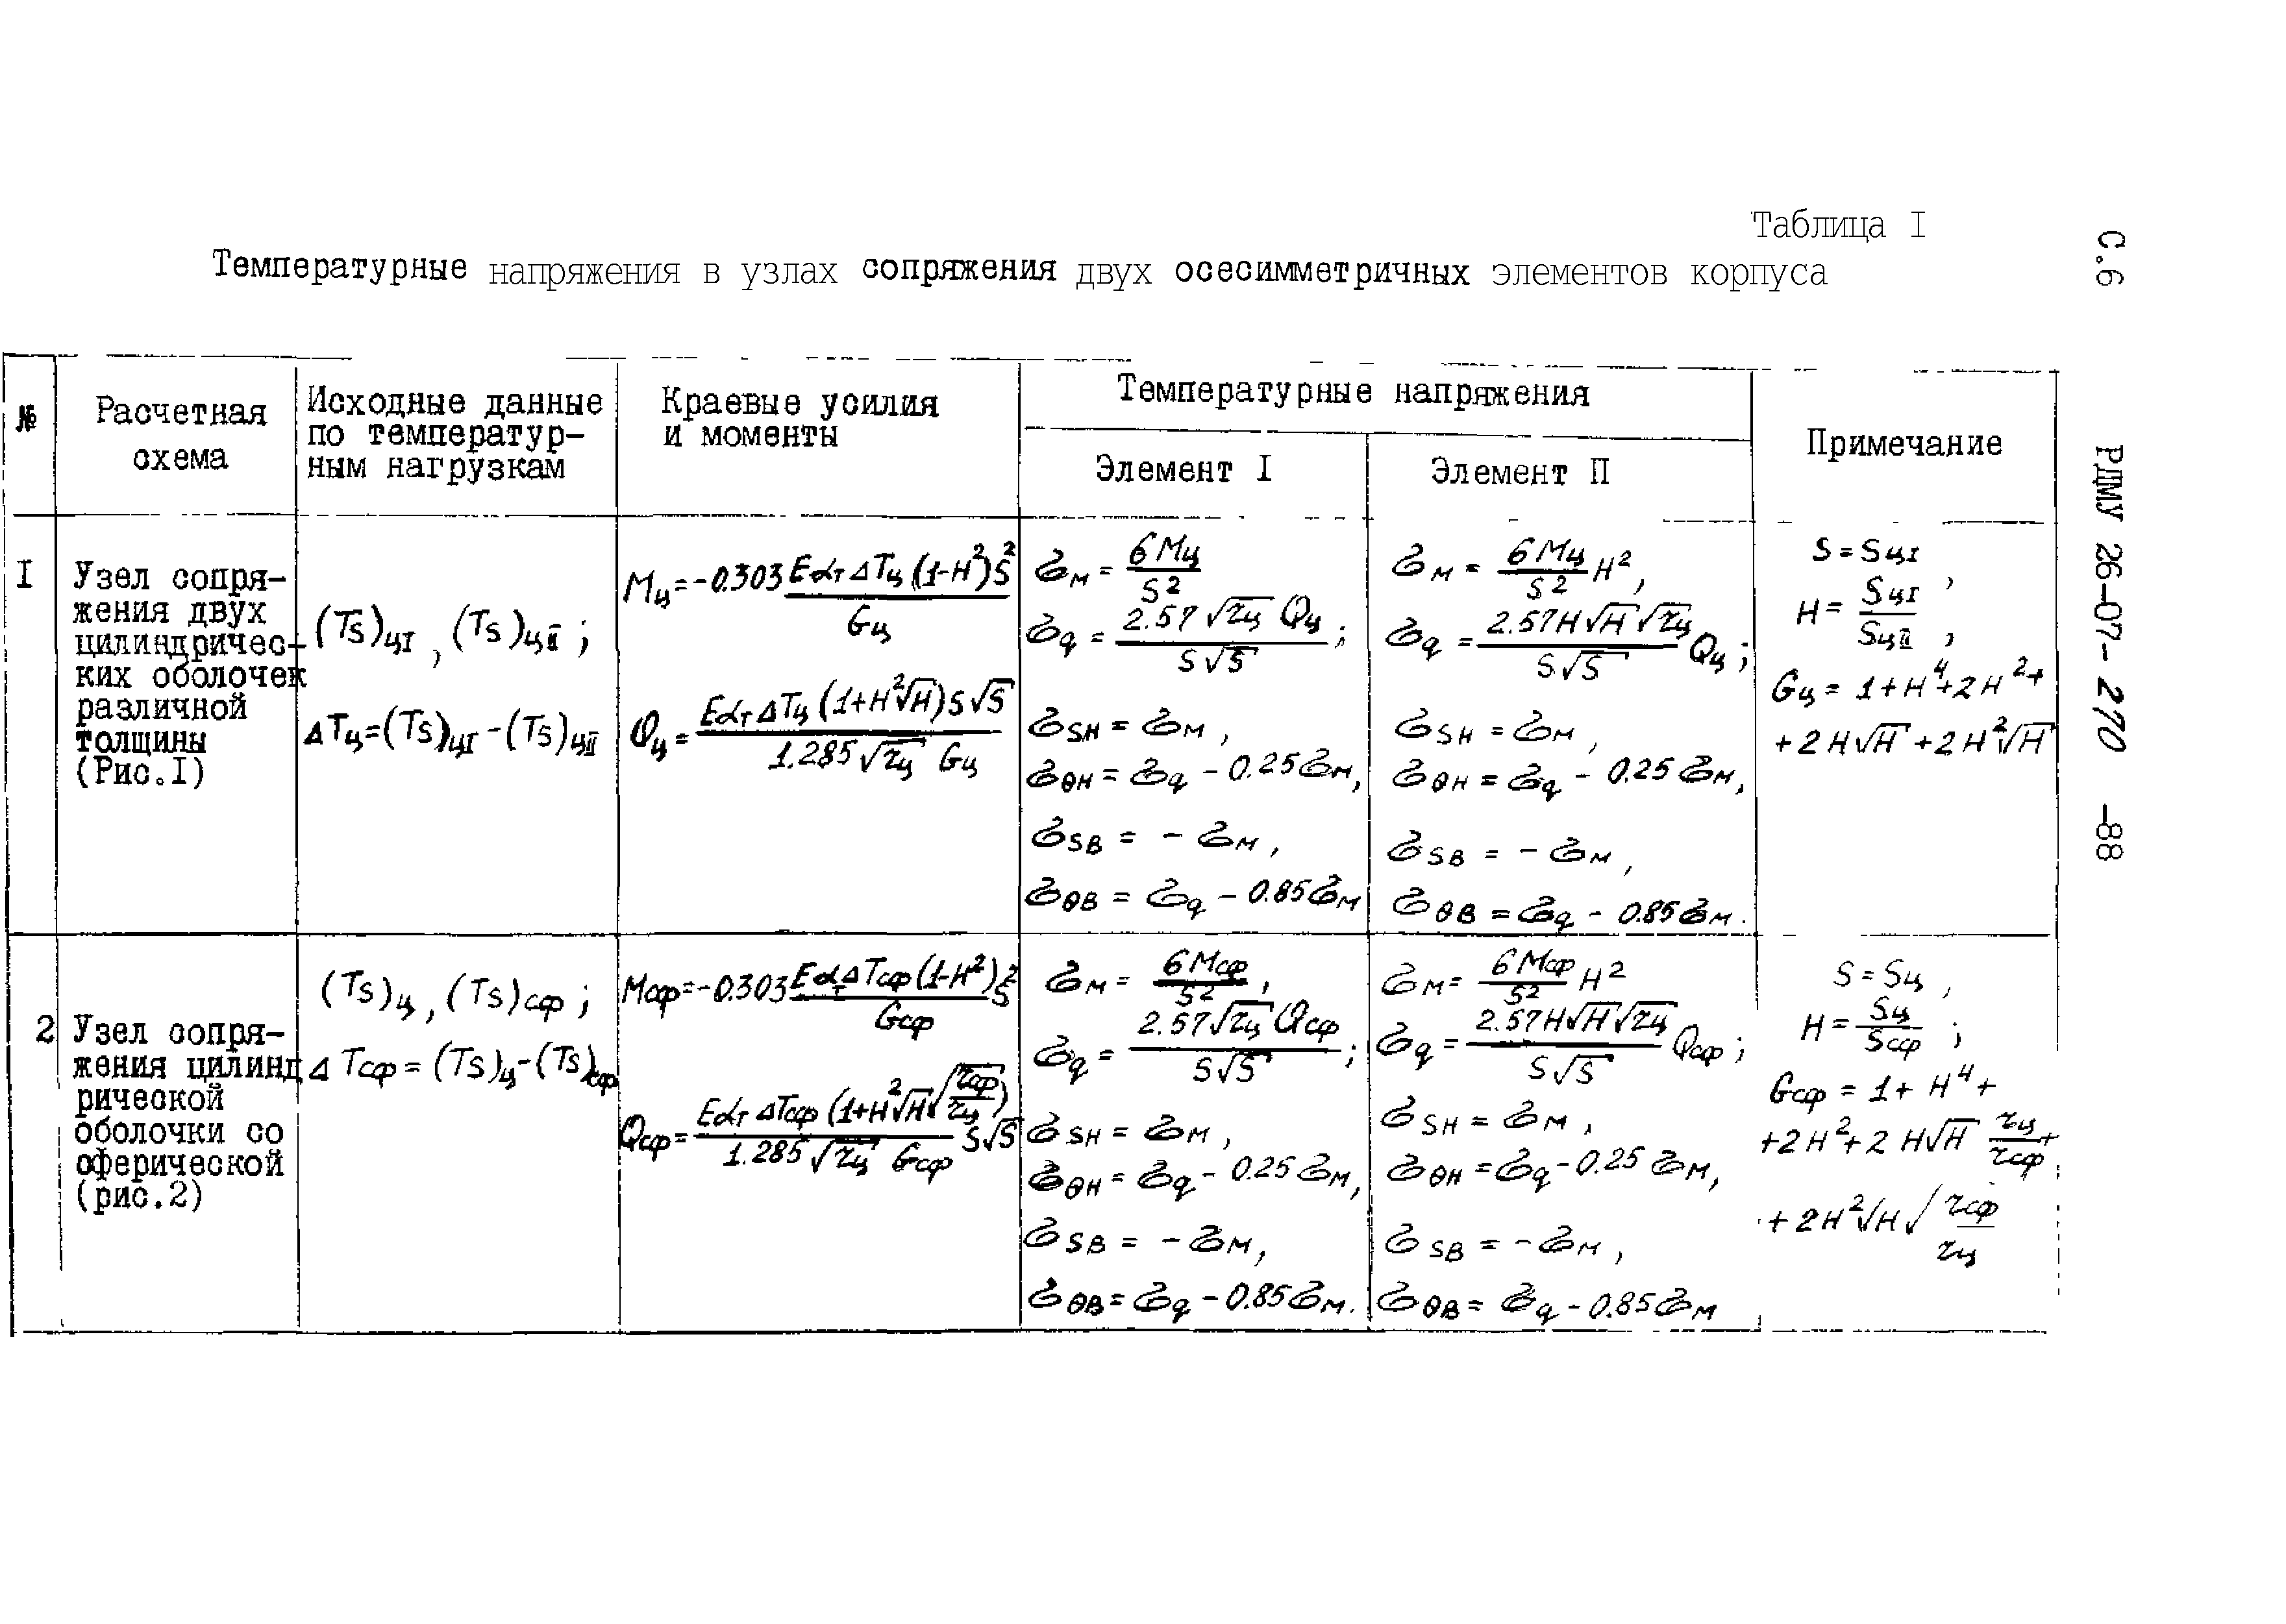 Таблица I
Температурные напряжения в узлах сопряжения двух осесимметричных элементов корпуса
С.6
РДМУ 26-07-270-88
№
Расчетная
схема
Исходные данные
по температур-
ным нагрузкам
Краевые усилия
и моменты
Температурные напряжения
Элемент I
Элемент П
Примечание
I
Узел сопря-
жения двух
цилиндричес-
ких оболочек
различной
толщины
(Рис.I)
(Ts)цI, (Ts)цII;
ΔTц=(Ts)цI-(Ts)цII
Mц=-0.303 EαтΔTц(1-H²)S² / Gц
Qц= EαтΔTц(1+H²√H)S√S / 1.285√rц Gц
σм= 6Mц / S²
σq= 2.57√rц Qц / S√S;
σSH=σм,
σθH=σq-0.25σм,
σSB=-σм,
σθB=σq-0.85σм
σм= 6Mц / S² H²,
σq= 2.57H√H√rц / S√S Qц;
σSH=σм,
σθH=σq-0.25σм,
σSB=-σм,
σθB=σq-0.85σм.
S=SцI,
H= SцI / SцII,
Gц=1+H⁴+2H²+
+2H√H+2H²√H
2
Узел сопря-
жения цилинд
рической
оболочки со
сферической
(рис.2)
(Ts)ц, (Ts)сф;
ΔTсф=(Ts)ц-(Ts)сф
Mсф=-0.303 EαтΔTсф(1-H²)S² / Gсф
Qсф= EαтΔTсф(1+H²√H√(rсф/rц)) / 1.285√rц Gсф S√S
σм= 6Mсф / S²,
σq= 2.57√rц Qсф / S√S;
σSH=σм,
σθH=σq-0.25σм,
σSB=-σм,
σθB=σq-0.85σм.
σм= 6Mсф / S² H²
σq= 2.57H√H√rц / S√S Qсф;
σSH=σм,
σθH=σq-0.25σм,
σSB=-σм,
σθB=σq-0.85σм
S=Sц,
H= Sц / Sсф;
Gсф=1+H⁴+
+2H²+2H√H rц/rсф+
+2H²√H√(rсф/rц)